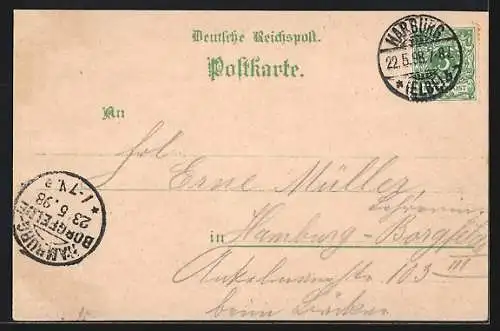 Deutsche Reichspost.
Postkarte.
HARBURG
22.5.98.7-8
* (ELBE) *
5
An
Frl. Erne Müller
Lehrerin
in Hamburg-Borgfelde
103 III
beim Bäcker
HAMBURG
BORGFELDE
23.5.98